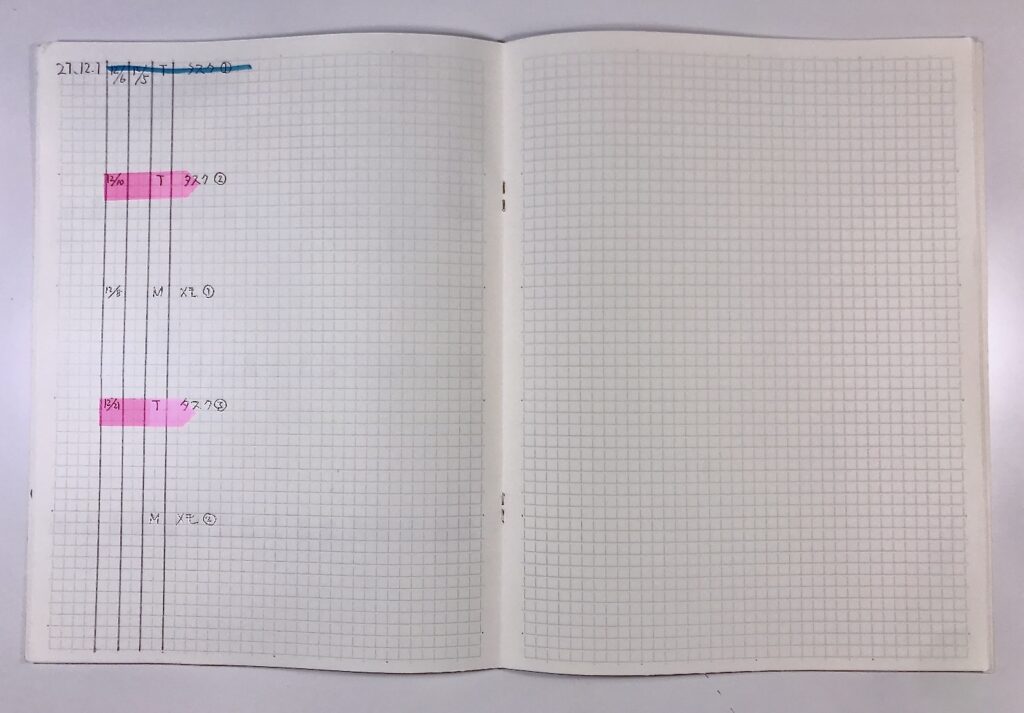 27.12.1 12/6 12/5 T タスク①
12/10 T タスク②
12/8 M メモ①
12/21 T タスク③
M メモ②